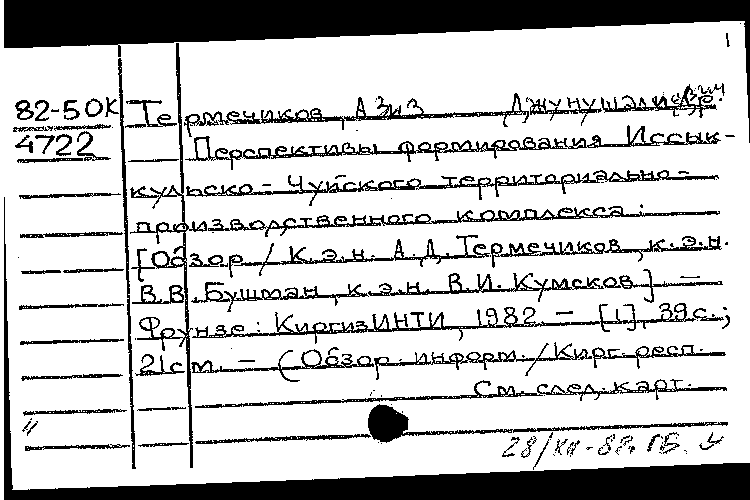 1
82-5 ОК Термечиков, Азиз Джунушалиевич.
4722 Перспективы формирования Иссык-
кульско-Чуйского территориально-
производственного комплекса:
[Обзор / К.э.н. А.Д. Термечиков, к.э.н.
В.В. Бушман, к.э.н. В.И. Кумсков]. —
Фрунзе: КиргизИНТИ, 1982. — [1], 39 с.;
21 см. — (Обзор. информ. / Кирг. респ.
См. след. карт.
28/XII-82. ГБ.